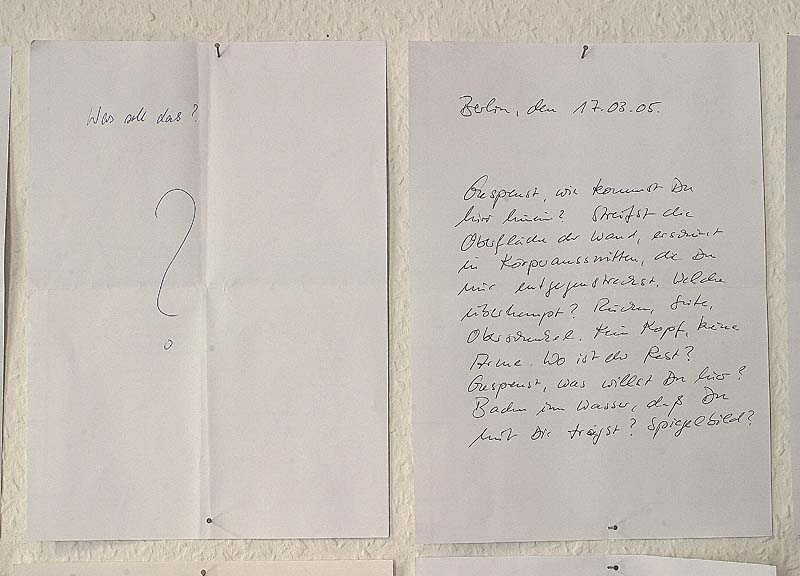 Was soll das?
?
Berlin, den 17.03.05.
Gespenst, wie kommst Du
hier hinein? Streifst die
Oberfläche der Wand, erscheinst
in Körperausschnitten, die Du
mir entgegenstreckst. Welche
überhaupt? Rücken, Seite,
Oberschenkel. Kein Kopf, keine
Arme. Wo ist der Rest?
Gespenst, was willst Du hier?
Baden im Wasser, daß Du
mit Dir trägst? Spiegelbild?